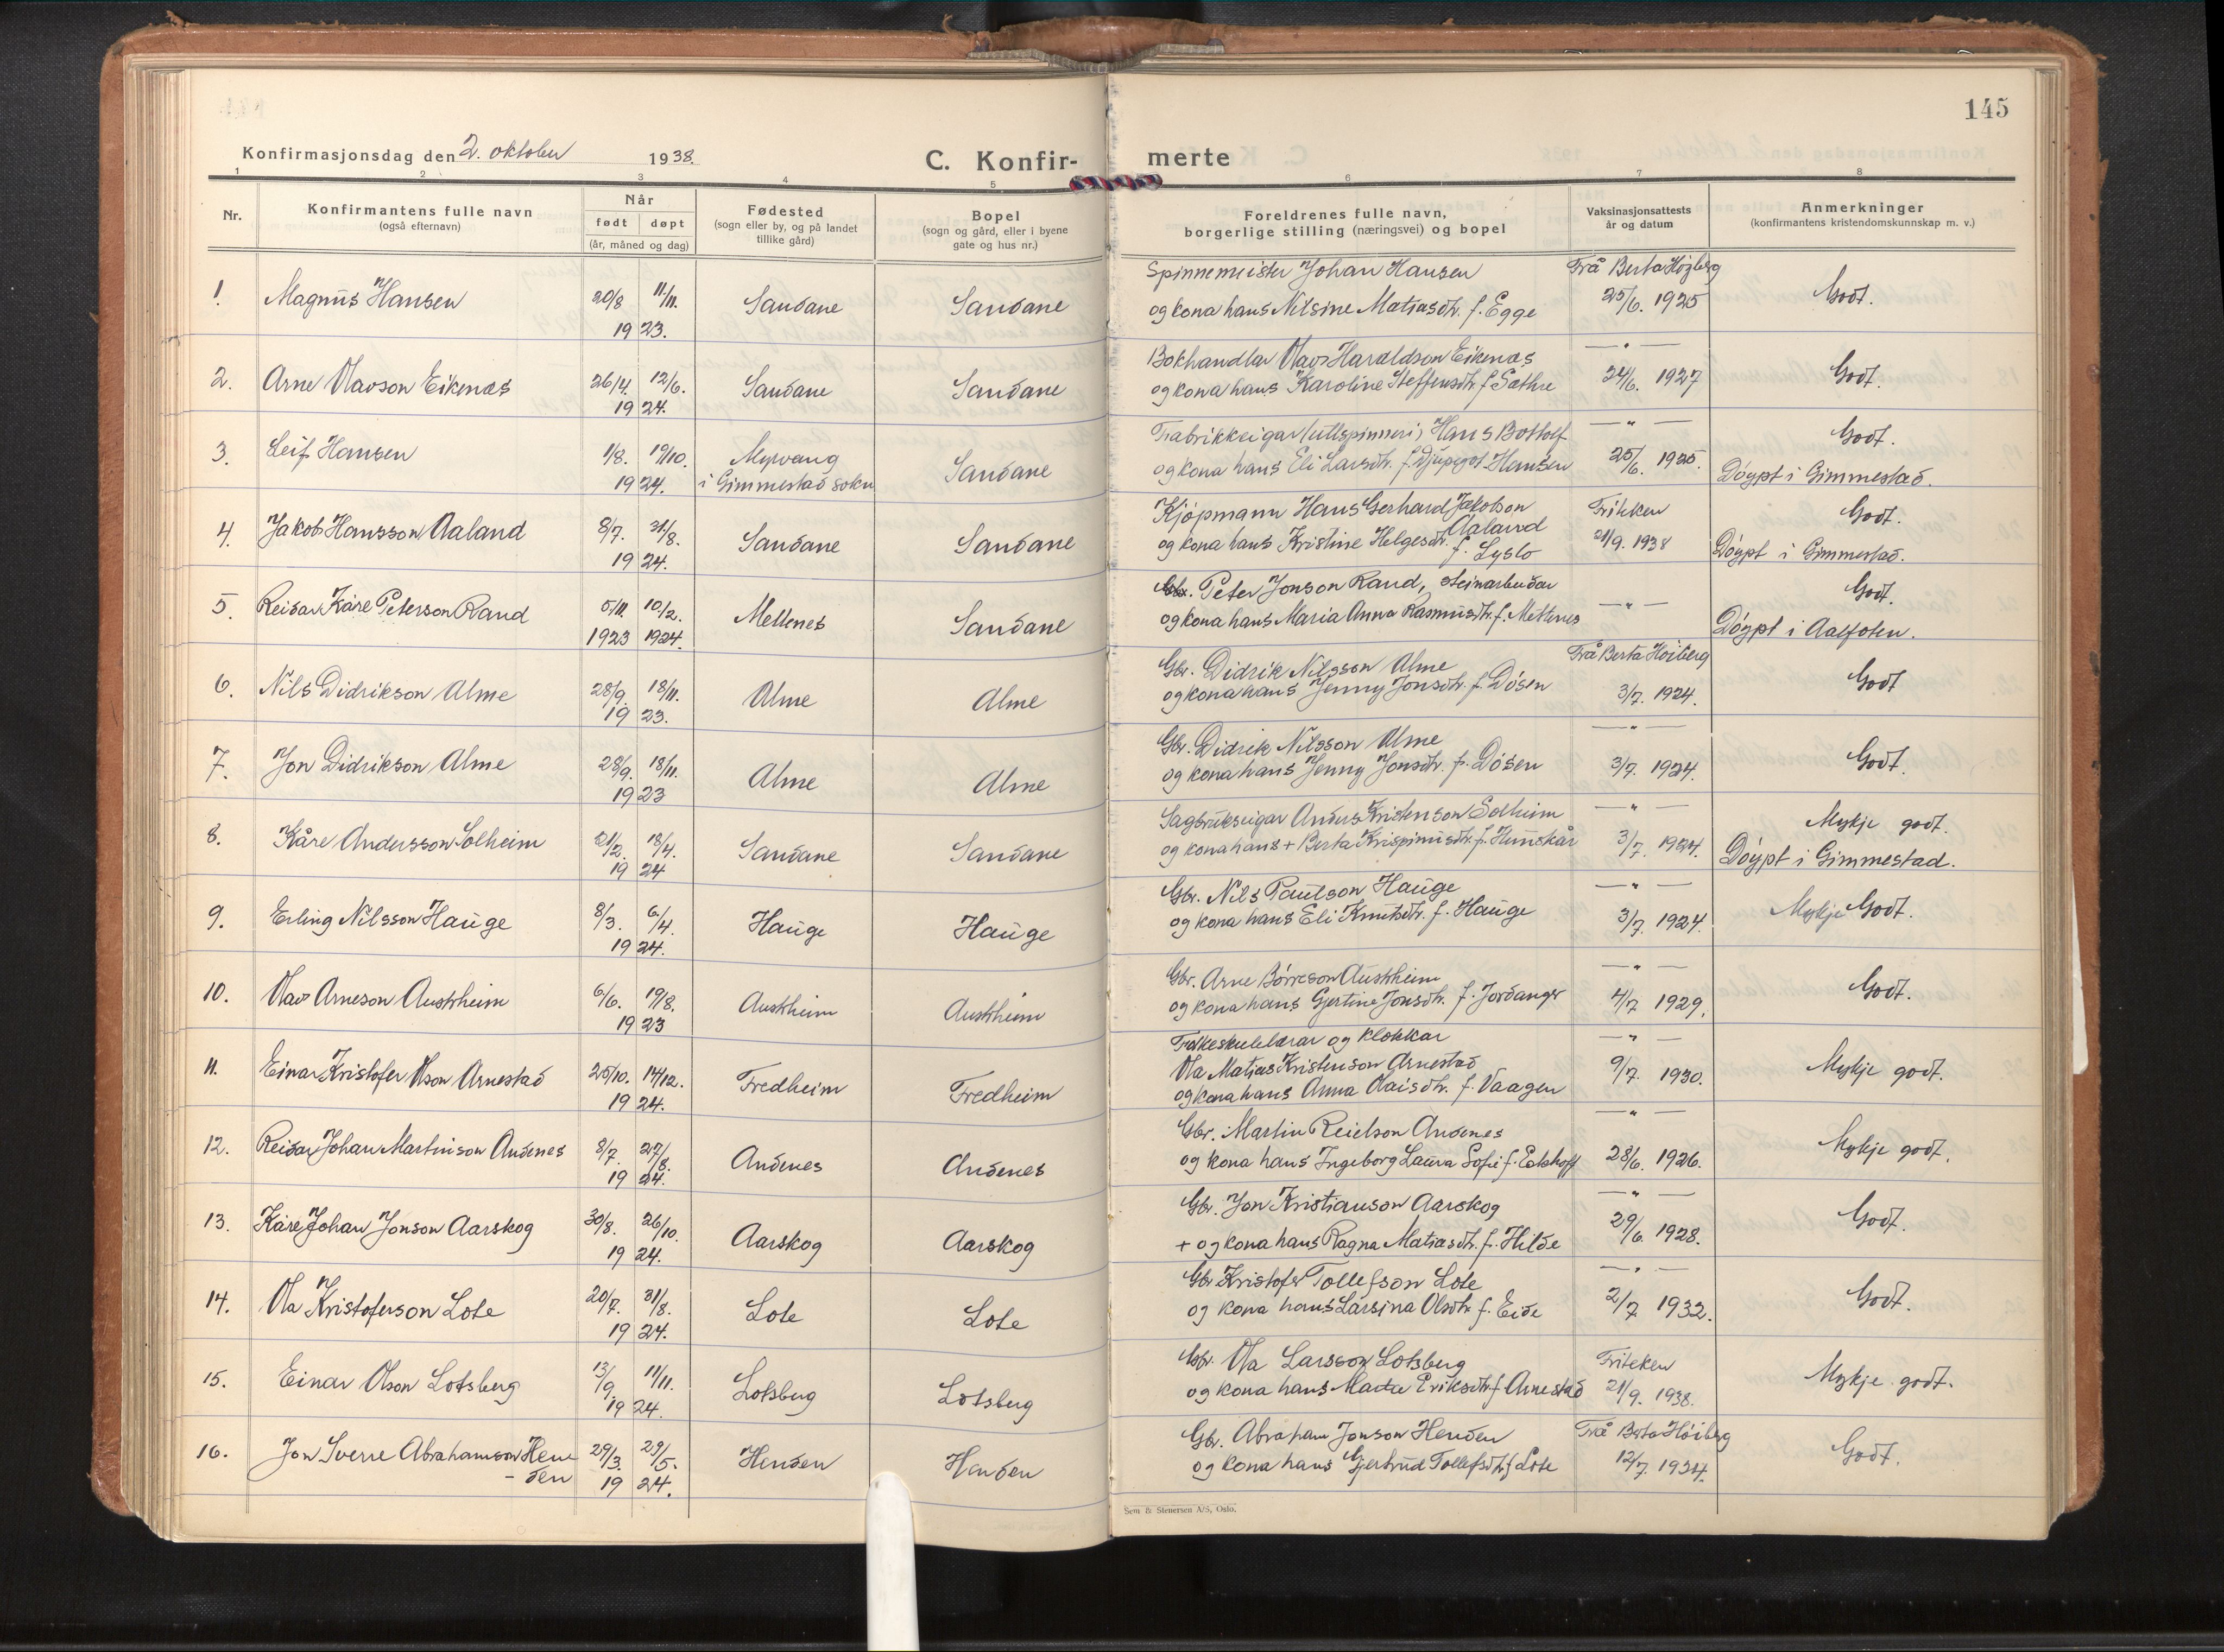 145
Konfirmasjonsdag den 2. oktober 1938.
C. Konfir-
merte
1 2 3 4 5 6 7 8
Nr.
Konfirmantens fulle navn
(også efternavn)
Når
født døpt
(år, måned og dag)
Fødested
(sogn eller by, og på landet
tillike gård)
Bopel
(sogn og gård, eller i byene
gate og hus nr.)
Foreldrenes fulle navn,
borgerlige stilling (næringsvei) og bopel
Vaksinasjonsattests
år og datum
Anmerkninger
(konfirmantens kristendomskunnskap m. v.)
Spinnemeister Johan Hansen Frå Berta Höyberg
1. Magnus Hansen 20/8 11/11. Sandane Sandane og kona hans Nilsine Matiasdtr. f. Egge 25/6. 1925 Godt.
1923.
Bokhandlar Olav Haraldson Eikenæs — " —
2. Arne Olavson Eikenæs 26/4. 12/6. Sandane Sandane og kona hans Karoline Steffensdtr. f. Sæthre 24/6. 1927 Godt.
1924.
Fabrikkeigar (ullspinneri) Hans Bottolf — " — Godt.
3. Leif Hansen 1/8. 19/10. Myrvang Sandane og kona hans Eli Larsdtr. f. Djupvot Hansen 25/6. 1925.
1924. i Gimmestad sokn Döypt i Gimmestad.
Kjöpmann Hans Gerhard Jakobson Aaland Friken Godt.
4. Jakob Hansson Aaland 8/7. 31/8. Sandane Sandane og kona hans Kristine Helgesdtr. f. Lyslo 21/9. 1938 Döypt i Gimmestad.
1924.
Peter Jonson Rand, steinarbeidar Godt.
5. Reidar Kåre Peterson Rand 5/11. 10/2. Mellenes Sandane og kona hans Maria Anna Rasmusdtr. f. Mettenes — " —
1923 1924. Döypt i Aalfoten.
Gbr. Didrik Nilsson Alme Frå Berta Höiberg
6. Nils Didrikson Alme 28/9. 18/11. Alme Alme og kona hans Jenny Jonsdtr. f. Dösen 3/7. 1924. Godt
1923.
Gbr. Didrik Nilsson Alme — " —
7. Jon Didrikson Alme 28/9. 18/11. Alme Alme og kona hans Jenny Jonsdtr. f. Dösen 3/7. 1924. Godt.
1923
Sagbrukseigar Anders Kristenson Solheim — " — Mykje godt.
8. Kåre Andersson Solheim 21/2. 18/4. Sandane Sandane og kona hans + Berta Krispinusdtr. f. Hunskår 3/7. 1924. Döypt i Gimmestad.
1924
Gbr. Nils Paulson Hauge — " —
9. Erling Nilsson Hauge 8/3. 6/4. Hauge Hauge og kona hans Eli Knutsdtr. f. Hauge 3/7. 1924. Mykje Godt.
1924.
Gbr. Arne Börreson Austrheim — " —
10. Olav Arneson Austrheim 6/6. 19/8. Austrheim Austrheim og kona hans Gjertine Jonsdtr. f. Jordanger 4/7 1929. Godt.
1923
Folkeskulelærar og klokkar — " —
11. Einar Kristofer Olson Arnestad 25/10. 14/12. Fredheim Fredheim Ola Matias Kristenson Arnestad 9/7. 1930. Mykje godt.
1924. og kona hans Anna Olaisdtr. f. Vaagen
Gbr. Martin Reielson Andenes — " —
12. Reidar Johan Martinson Andenes 8/7. 27/8. Andenes Andenes og kona hans Ingeborg Laura Sofie f. Eekhoff 28/6. 1926. Mykje godt.
1924.
Gbr. Jon Kristianson Aarskog — " —
13. Kåre Johan Jonson Aarskog 30/8. 26/10. Aarskog Aarskog + og kona hans Ragna Matiasdtr. f. Hilde 29/6. 1928. Godt.
1924.
Gbr Kristofer Tollefson Lote — " —
14. Ola Kristoferson Lote 20/7. 31/8. Lote Lote og kona hans Larsina Olsdtr f. Eide 2/7 1932. Godt.
1924.
Gbr. Ola Larsson Lotsberg Friteken
15. Einar Olson Lotsberg 13/9. 11/11. Lotsberg Lotsberg og kona hans Marta Eriksdtr f Arnestad 21/9. 1938. Mykje godt.
1924.
Gbr. Abraham Jonson Henden Frå Berta Höiberg
16. Jon Sverre Abrahamson Hen- 29/3. 29/5. Henden Henden og kona hans Gjertrud Tollefsdtr f Lote 12/7. 1934. Godt.
-den 1924.
Sem & Stenersen A/S, Oslo.